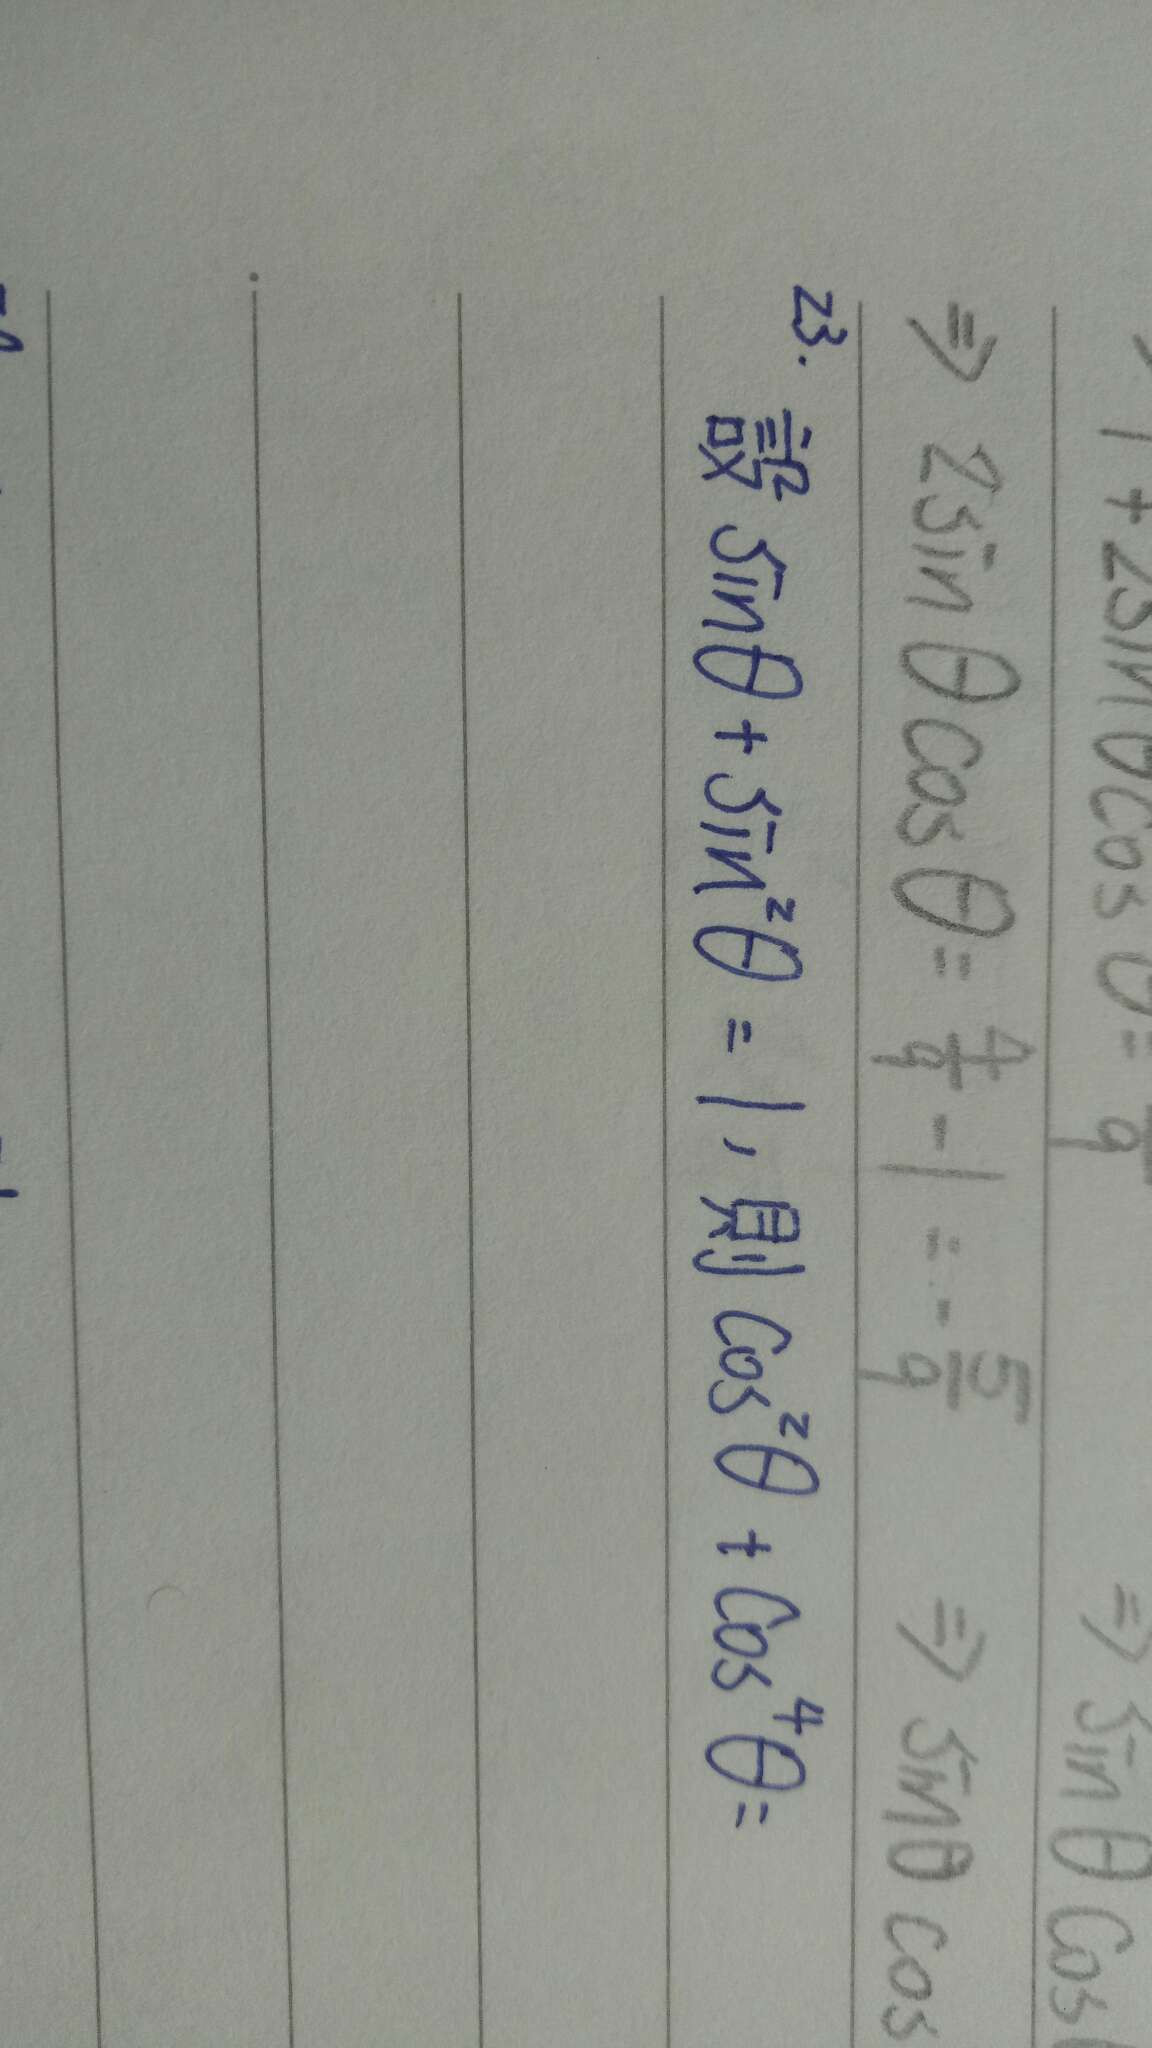 1 + 2sinθcosθ = 9 ⇒ sinθcos
⇒ 2sinθcosθ = 4/9 - 1 = -5/9 ⇒ sinθcos
23. 設 sinθ + sin²θ = 1, 則 cos²θ + cos⁴θ =